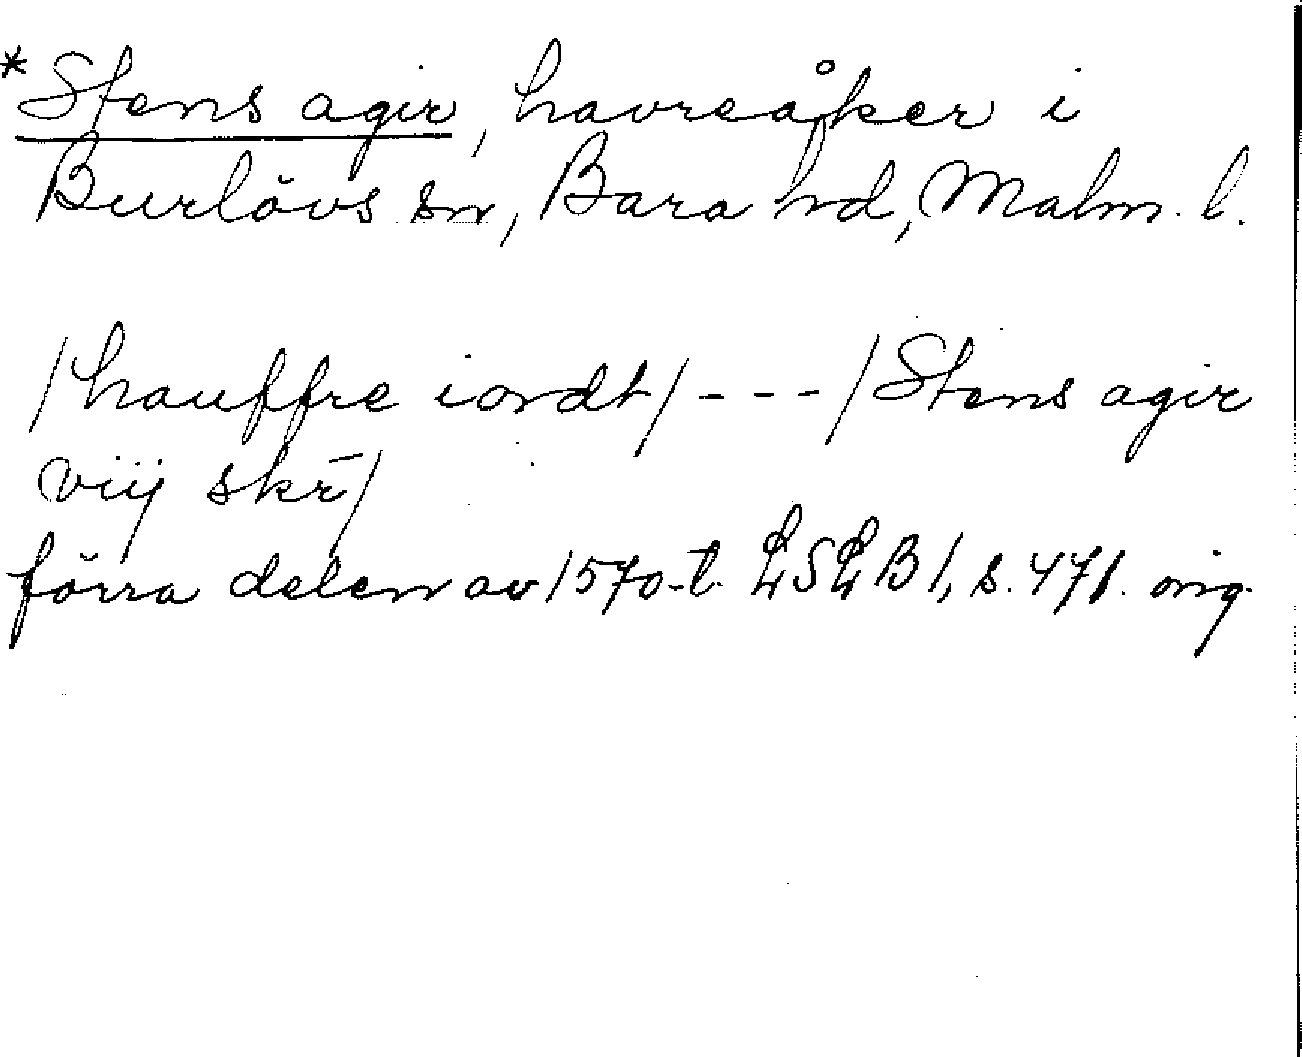 *Stens agir, havreåker i
Burlövs sn, Bara hd, Malm. l.
/hauffre iordt/---/Stens agir
viij skr̄/
förra delen av 1570-t. LSLB1, s. 471. orig.